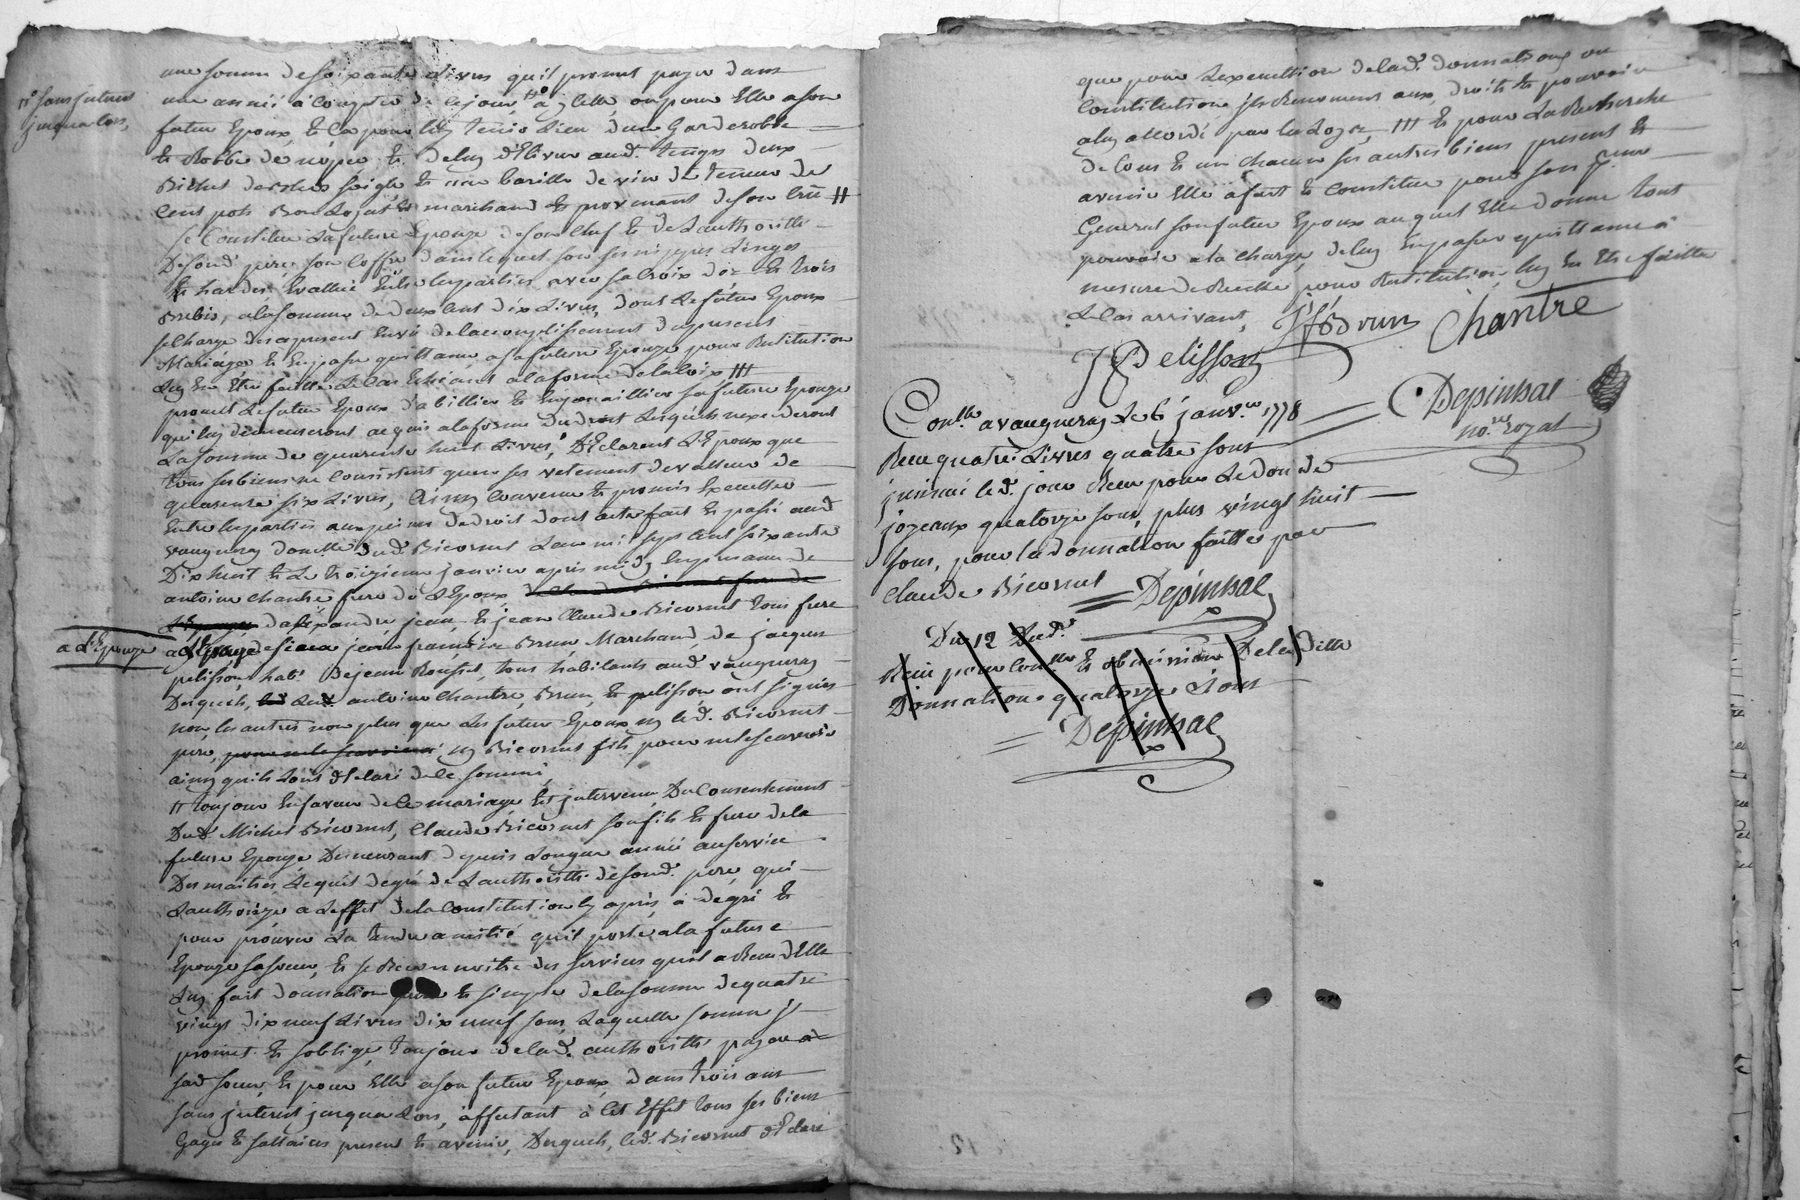 une somme de soixante livres quil promet payer dans
une année à compter de ce jour, à ycelle ou pour Elle a son
futur Epoux, & ce pour luy tenir Lieu d'une Garderobbe
& Robbe de nôpce & deluy délivrer aud. temps deux
Bichet de bled seigle & une barille de vin de tenue de
cent pots Bon Loyal & marchand & provenant de son crû #
Se Constitue La future Epouse de son Chef & de Lauthorité
Desond. pere, son Coffre dans lequel sont ses nippes Linges
& hardes Evallué Entre les parties avec sa Croix d'or & trois
Brebis, a la somme de deux cent dix Livres, dont Le futur Epoux
se charge des a present En vû de laccomplissement du present
Mariage & En passe quittance a sa future Epouse pour Restitution
Luy En Etre faitte Le Cas Echéant a la forme de la loix ###
promet Le futur Epoux d'abillier & Enjouaillier sa future Epouse
qui luy demeureront acquis a la forme du droit Lesquels nexcederont
La somme de quarante huit Livres, Déclarent L'Epoux que
tous ses biens ne Consistent quen ses vetement de valleur de
quarante six Livres, Ainsy Convenu & promis Executer
Entre les parties aux peines de droit dont acte fait & passé aud.
vaugneray domicille dud. Bicornet Lan mil sept cent soixante
Dix huit & Le troizieme janvier après midy En presence de
antoine chantre frere de L'Epoux,
d'aléxandre jean, & jean Claude Bicornet tous frere
a d. Epouze
de sieur jean francois Brun, Marchand, de jacques
pelisson, hab. De jean Roussel, tous habitants aud. vaugneray
Desquels, Led. antoine Chantre, Brun, & pelisson ont signés
non les autres non plus que Les futur Epoux ny led. Bicornet
pere, ny Bicornet fils pour ne le scavoir
ainsy quils Lont déclaré de ce sommé,
# toujour En faveur de ce mariage Est intervenu Du Consentement
Dud. Michel Bicornet, Claude Bicornet son fils & frere de la
future Epouse Demeurant depuis Longue année au service
Des maitres Lequel de gré de Lauthorité de sond. pere qui
Lauthorize a Leffet de la Constitution cy après, à de gré &
pour prouver La tendre amitié quil porte a la future
Epouse sa soeur, & se Reconnoitre des services quil a Recu d'Elle
Luy fait donnation pure & simple de la somme de quatre
vingt dix neuf Livres dix neuf sous, Laquelle somme Il
promet & soblige, toujour de lad. authorité payer à
sad. soeur, & pour Elle a son futur Epoux, dans trois ans
sans jnterest jusqua Lors, affectant à Cet Effet tous ses biens
Gages & sallaires present & avenir, Desquels, led. Bicornet déclare
# sans jnterest
jusqua lors,
que pour Lexecuttion de lad. donnation ou
Constitution ils Renoncent aux droits & pouvoir
a luy accordé par les Loyx, ### & pour La Recherche
de tous & un chacun ses autres biens present &
avenir Elle à fait & Constitue pour son p.reur
General son futur Epoux auquel Elle donne tout
pouvoir a la charge, de luy En passer quittance à
mesure de Recette pour Restitution luy En Etre faitte
Le Cas arrivant,
Jfs Brun Chantre
J Pelisson
Depinhac
no.re royal
Con.llé a vaugneray Le 6 janv.er 1778
Recu quatre Livres quatre sous
jnsinué led. jour Recu pour Le don de
joyeaux quatorze sous, plus vingt huit
sous, pour la donnation faitte par
Claude Bicornet
Depinhac
Du 12 Dud.
Recu pour Con.lle & obmission De la Ditte
Donnation quatorze sous
Depinhac